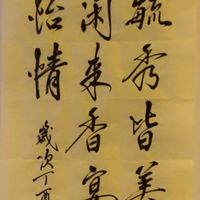 毓秀皆美
闲来香寓
怡情
岁次丁酉